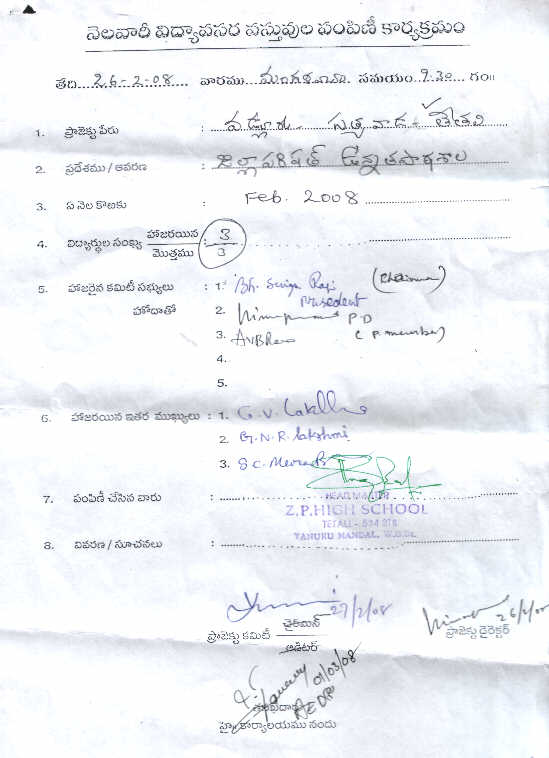 నెలవారీ విద్యావసర వస్తువుల పంపిణీ కార్యక్రమం
తేది...26-2-08... వారము...మంగళవారం సమయం.9.30... గం॥
1. ప్రాజెక్టు పేరు : వడ్లూరు..... సత్యవాడ - తేతలి
2. ప్రదేశము / ఆవరణ : జిల్లాపరిషత్ ఉన్నతపాఠశాల
3. ఏ నెల కొఱకు : Feb. 2008
4. విద్యార్థుల సంఖ్య హాజరయిన / మొత్తము : 3 / 3
5. హాజరైన కమిటీ సభ్యులు : 1. Bh. Surya Raju (Chairman)
president
హోదాతో 2. P D
3. AVB (P. member)
4.
5.
6. హాజరయిన ఇతర ముఖ్యులు : 1. G. V.
2. G. N. R. Lakshmi
3. S C.
7. పంపిణీ చేసిన వారు :
HEAD MASTER
Z.P.HIGH SCHOOL
TETALI - 534 218
TANUKU MANDAL, W.G.Dt.
8. వివరణ / సూచనలు :
27/2/08
ప్రాజెక్టు కమిటీ చైర్మన్ / ఆడిటర్
26/2/08
ప్రాజెక్టు డైరెక్టర్
01/03/08
హై కార్యాలయము నందు